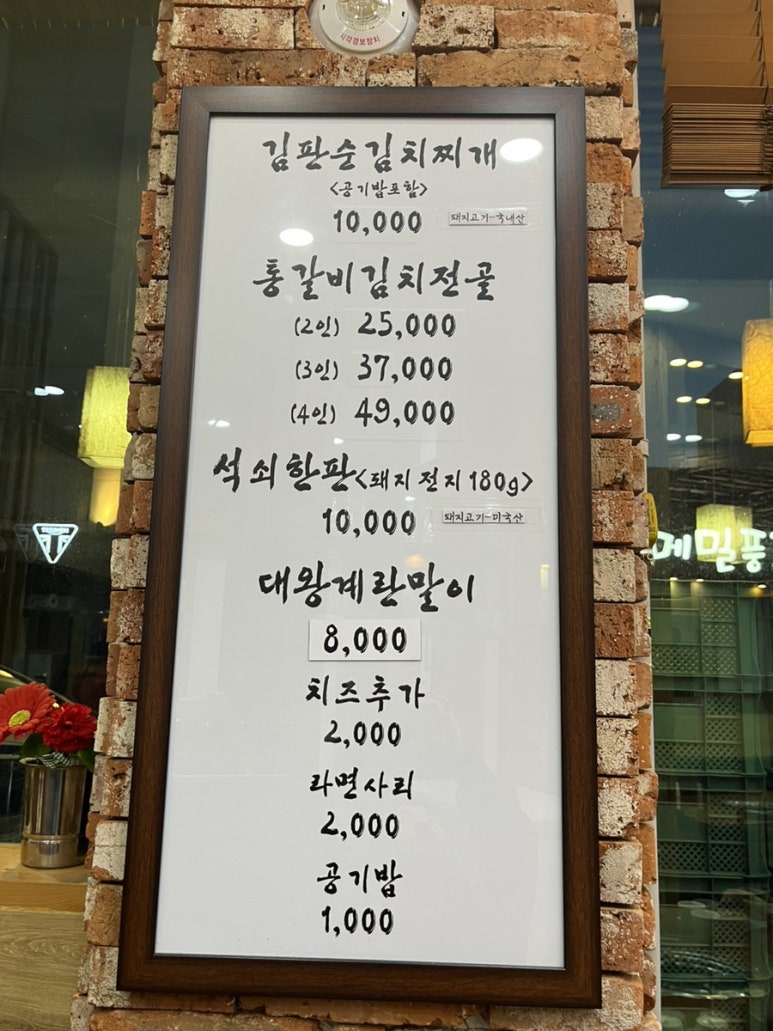 시각경보장치
김판순김치찌개
<공기밥포함>
10,000 돼지고기-국내산
통갈비김치전골
(2인) 25,000
(3인) 37,000
(4인) 49,000
석쇠한판<돼지전지180g>
10,000 돼지고기-미국산
대왕계란말이
8,000
치즈추가
2,000
라면사리
2,000
공기밥
1,000
메밀